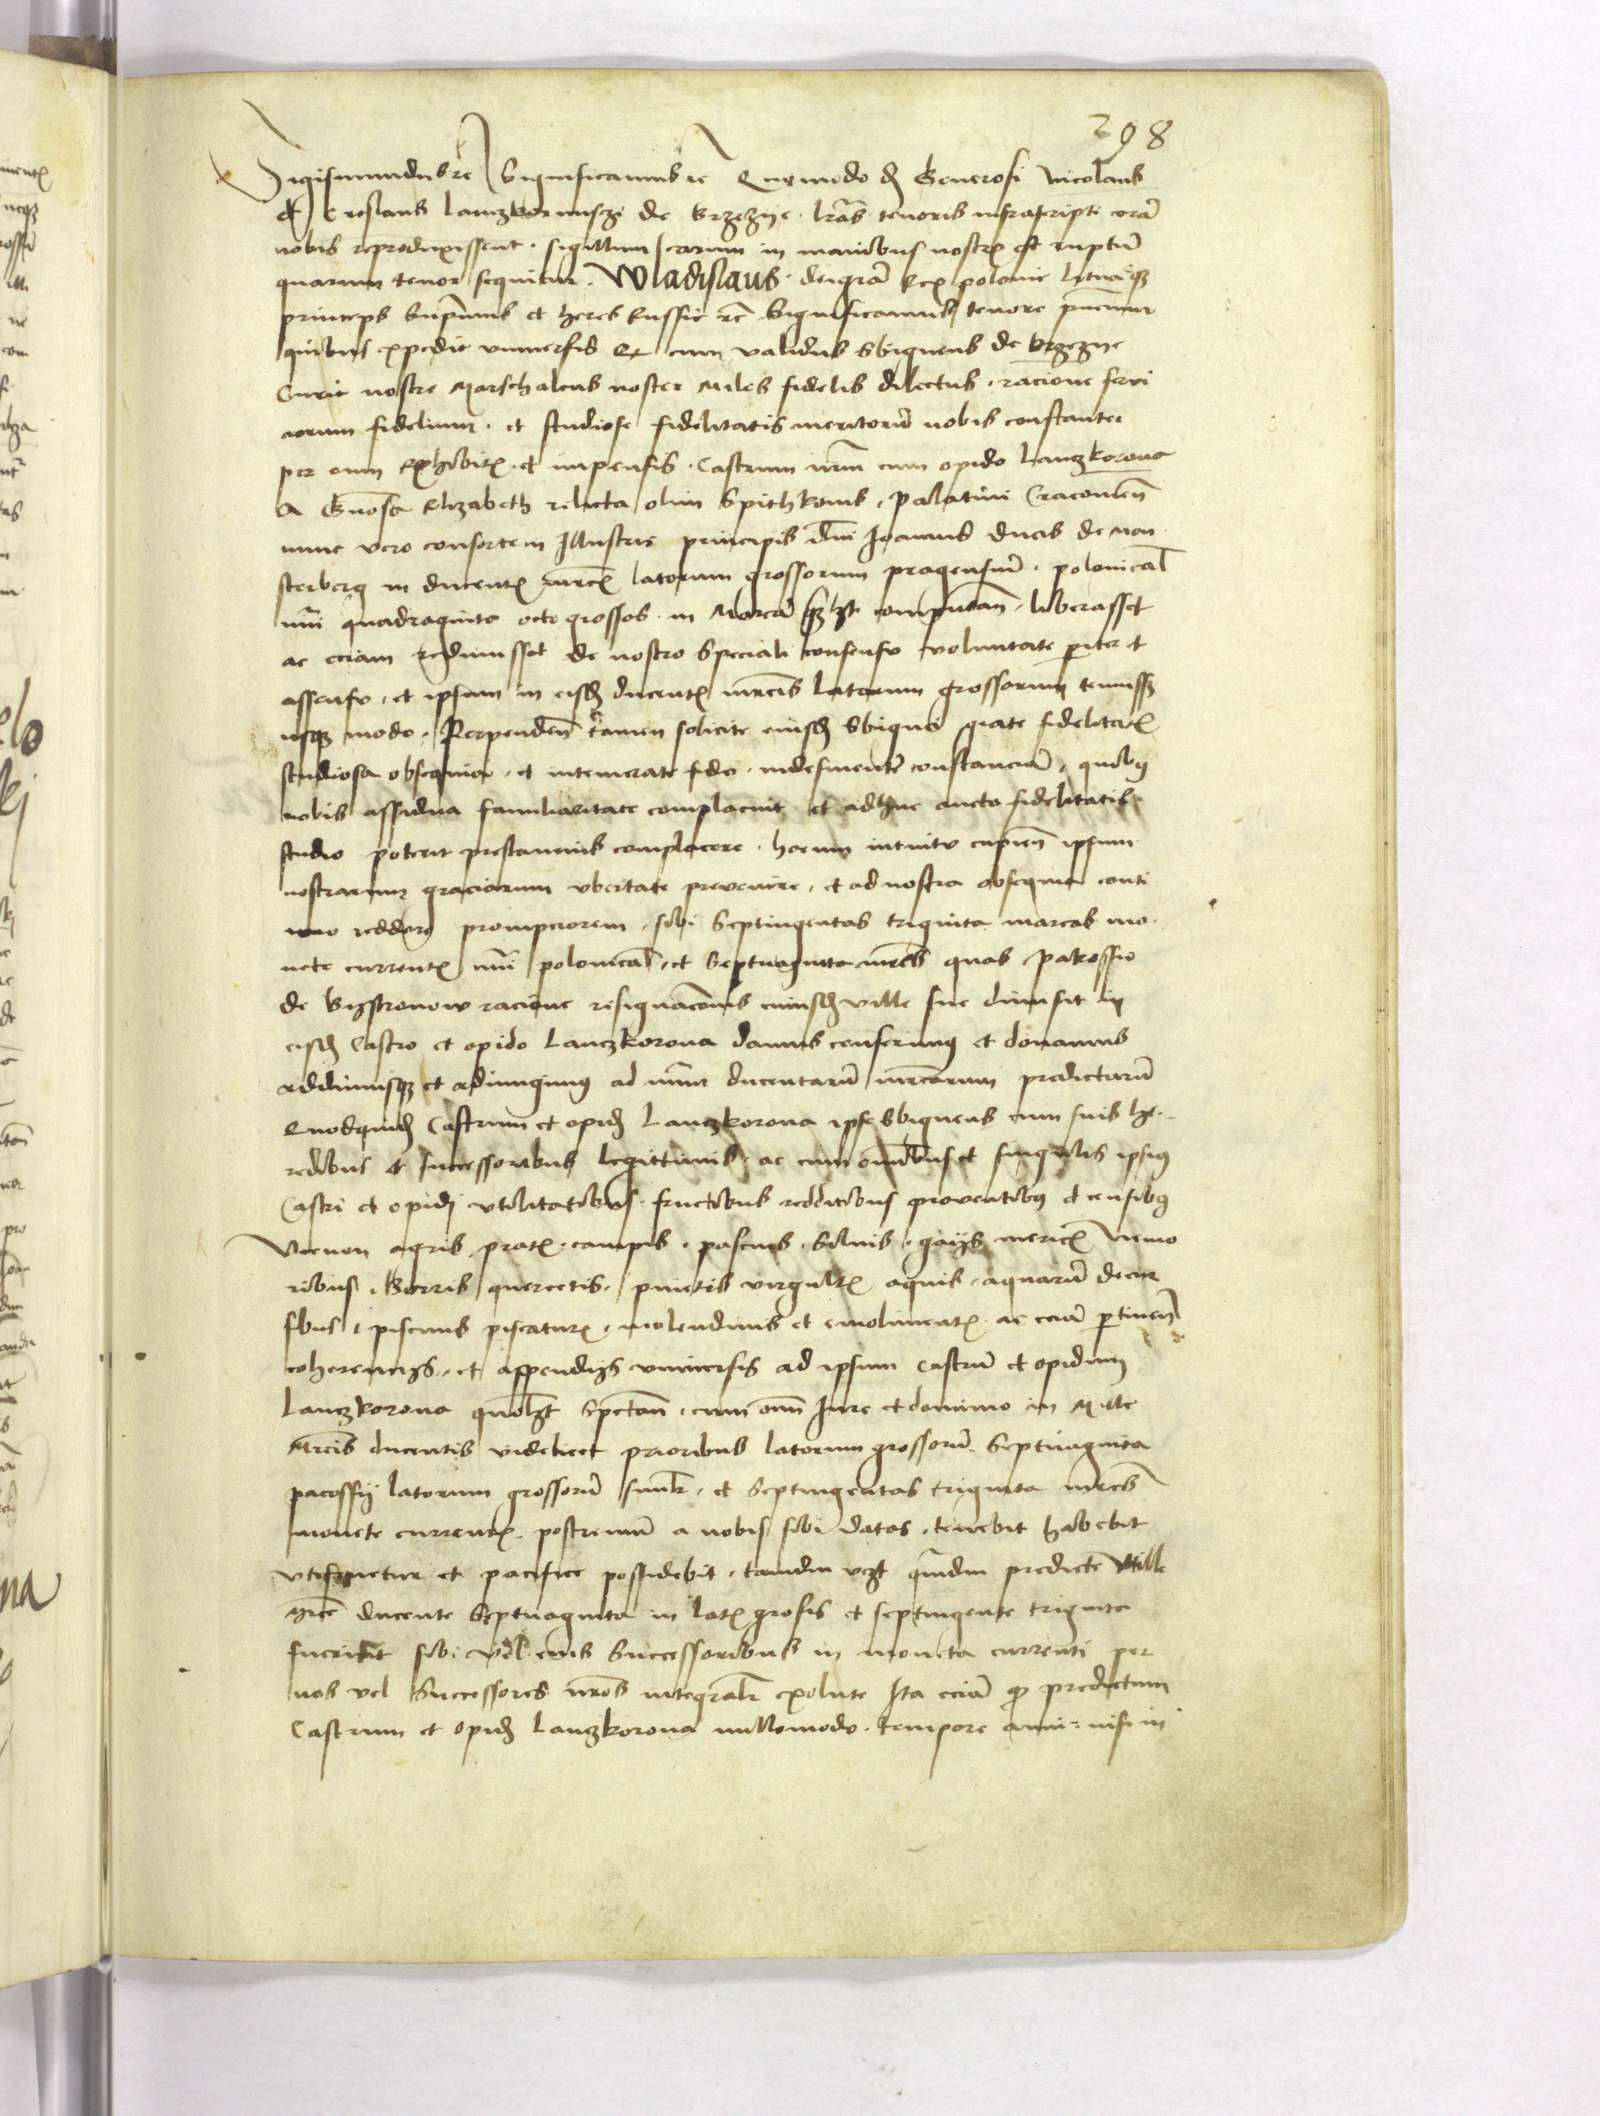 298
Sigismundus rc Significamus rc Quomodo dū Generosi Nicolaus
et Creslaus Lanczkorunszki de Brzezye . lrās tenoris infrascripti corā
nobis reproduxissent . sigillum earum in manibus nostrꝭ est ruptū
quarum tenor sequitur . Wladislaus . dei grā Rex polonie Litwaꝗ
princeps Supmus et heres Russie rc Significamus tenore pñcium
quibus expedit vniversis Qꝛ cum validus Sbigneus de Brzezye
Curie nostre Marschalcus noster Miles fidelis dilectus . racione servi
ciorum fidelium . et studiose fidelitatis meritorū nobis constanter
per eum exhibitꝭ . et impensis . Castrum nrm cum opido Lanczkorona
A Gnosa Elizabeth relicta olim Spithkonis . Palatini Cracovien̄
nunc vero consorte in Illustris principis dni Joannis Ducis de Mon
sterberg in ducentꝭ mrcꝭ latorum grossorum pragensiū . polonical
nūi quadraginta octo grossos . in Marcā quālzt computan̄ . liberasset
ac eciam redimisset de nostro Speciali consensu voluntate pariter et
assensu . et ipsum in eisdē ducentꝭ mrcis latorum grossorum tenuissz
usqꝫ modo . Perpenden̄ tamen solicite eiusdē Sbignei grate fidelitatꝭ
studiosa obsequia . et intemerate fidei . indesinentē constanciā . quibꝰ
nobis assidua familiaritate complacuit et adhuc aucto fidelitatis
studio poterit prestancius complacere . horum intuitu cupien̄ ipsum
nostrarum graciarum vbertate prevenire . et ad nostra obsequia conti
nuo reddere prompciorem . sibi Septingentas triginta marcas mo
nete currentꝭ nūi polonical . et Septuaginta mrcas quas Pakossio
de Bistronow racione resignacōnis cuiusdē ville sue dimisit in
eisdē Castro et opido Lanczkorona damus conferimꝰ et donamus
addimusqꝫ et adiungimꝰ ad nūm ducentarū mrcarum predictarū
Quodquidē Castrum et opidū Lanczkorona ipse Sbigneus cum suis he
redibus et successoribus legittimis . ac cum omnibus et singulis ipsiꝰ
Castri et opidi vtilitatibus . fructibus redditibus proventibꝰ et censibꝰ
Necnon agris pratꝭ . campis . pascuis . Silvis . gaijs mericꝭ Nemo
ribus . Borris quercetis . pinetis virgultꝭ aquis . aquarū decur
sibus . piscinis piscaturꝭ . molendinis et emolimentꝭ . ac eciā ptinen̄
coherencijs . et appendijs vniversis ad ipsum Castrū et opidum
Lanczkorona quolzt Spectan̄ . cum omni Jure et dominio in Mille
Mrcis ducentis videlicet prioribus latorum grossorū . Septuaginta
pacossij latorum grossorū similr . et Septingentas triginta mrcas
monete currentꝭ . postremū a nobis sibi datas . tenebit habebit
vtifruetur et pacifice possidebit . tamdiu vczt quādiu predicte Mille
Mrce ducente Septuaginta in latꝭ grossis et septingente triginta
fuerint sibi vel eius Successoribus in moneta currenti per
nos vel Successores nros integralr exolute Ita eciā ꝙ predictum
Castrum et opidū Lanczkorona nullomodo . tempore anni . nisi in